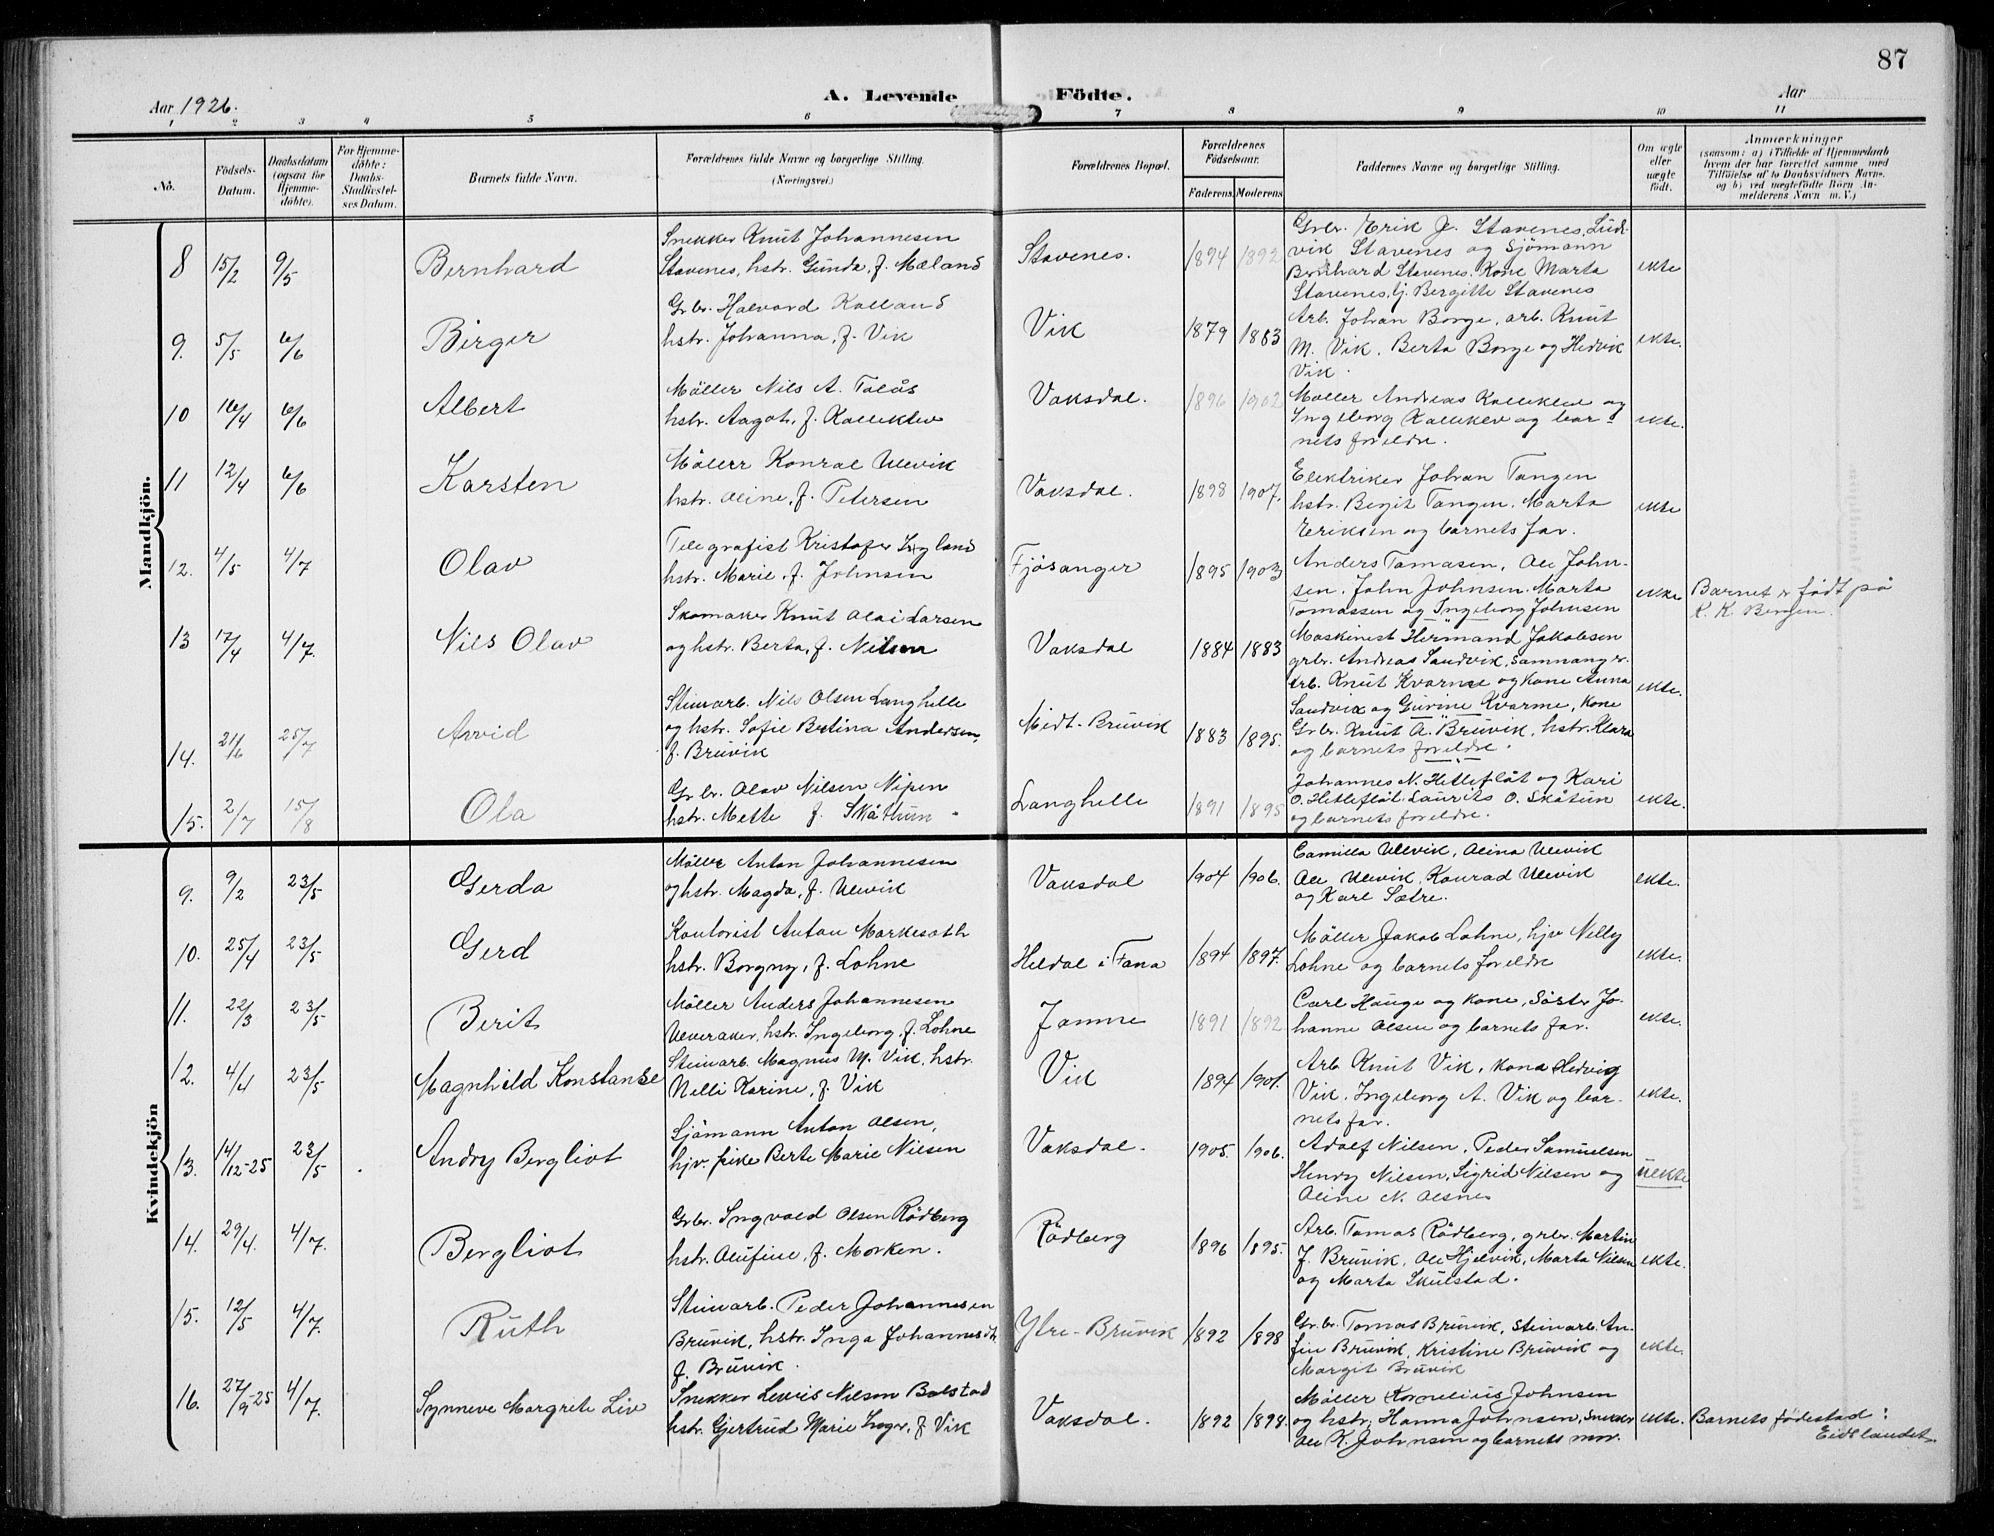 87
Aar 1926.
A. Levende Födte.
Aar
1 2 3 4 5 6 7 8 9 10 11
No.
Födsels-Datum.
Daabsdatum (ogsaa for Hjemme-döbte).
For Hjemme-döbte: Daabs-Stadfæstel-ses Datum.
Barnets fulde Navn.
Forældrenes fulde Navne og borgerlige Stilling. (Næringsvei.)
Forældrenes Bopæl.
Forældrenes Födselsaar.
Faderens. Moderens.
Faddernes Navne og borgerlige Stilling.
Om ægte eller uægte födt.
Anmærkninger
(saasom: a) i Tilfælde af Hjemmedaab hvem der har forrettet samme, med Tilföielse af to Daabsvidners Navne. og b) ved uægtefödte Börn An-melderens Navn m. V.)
Mandkjön.
8 15/2 9/5 Bernhard
Snekker Knut Johannesen
Stavenes, hstr. Gunda, f. Mæland
Stavenes. 1894 1892
Grbr. Erik J. Stavenes, Lud-
vik Stavenes og Sjömann
Bernhard Stavenes. Kone Marta
Stavenes, Bergitte Stavenes
ekte
9. 5/5 6/6 Birger
Grbr. Halvard Kalland
hstr. Johanna, f. Vik
Vik 1879 1883
Arb. Johan Borge, arb. Knut
M. Vik. Berta Borge og Hedvik
Vik.
ekte.
10 16/4 6/6 Albert
Möller Nils A. Tolås
hstr. Aagot, f. Kalleklev
Vaksdal. 1896 1902
Möller Andreas Kalleklev og
Ingeborg Kalleklev og bar-
nets foreldre.
ekte.
11 12/4 6/6 Karsten
Möller Konrad Ulvik
hstr. Aline, f. Petersen
Vaksdal. 1898 1907.
Elektriker Johan Tangen
hstr. Bergit Tangen, Marta
Eriksen og barnets far.
ekte
12. 4/5 4/7 Olav
Telegrafist Kristofer
hstr. Marie, f. Johnsen
Fjösanger 1895 1903
Anders Tomasen, Ole John-
sen, John Johnsen, Marta
Tomassen og Ingeborg Johnsen
ekke
Barnet er födt på
K. K. Bergen.
13 17/4 4/7. Nils Olav
Skomaker Knut Olai Larsen
og hstr. Berta, f. Nilsen
Vaksdal 1884 1883
Maskinist Hermand Jakobsen
grbr. Andreas Sandvik, Samnanger.
arb. Knut Kvarme og kone Anna
Sandvik og Gurine Kvarme, kone
ekte.
14. 21/6 25/7 Arvid
Steinarb. Nils Olsen Langhelle
og hstr. Sofie Betina Andersen,
f. Bruvik
Midt-Bruvik 1883 1895.
Grbr. Knut A. Bruvik, hstr. Klara
og barnets foreldre.
15. 2/7 15/8 Ola
Grbr. Olav Nilsen Nipen
hstr. Mette f. Skåthun
Langhelle 1891 1895
Johannes N. Hetleflåt og Kari
O. Hetleflåt. Laurits O. Skåtun
og barnets foreldre.
ekte.
Kvindekjön
9. 9/2 23/5 Gerda
Möller Anton Johannesen
og hstr. Magda, f. Ulvik
Vaksdal 1904 1906.
Camilla Ulvik, Alina Ulvik
Ole Ulvik, Konrad Ulvik
og Karl Sætre.
ekte.
10. 25/4 23/5 Gerd
Kontorist Anton Markeseth
hstr. Borgny, f. Lohne
Heldal i Fana 1894 1897.
Möller Jakob Lohne, hjv Nelly
Lohne og barnets foreldre
ekte.
11. 22/3 23/5 Berit
Möller Anders Johannesen
Ulveraker, hstr. Ingeborg, f. Lohne
Jamne 1891 1892
Carl Hauge og kone, Söster Jo-
hanne Olsen og barnets far.
ekte.
12. 4/4 23/5 Magnhild Konstanse
Steinarb. Magnus M. Vik, hstr.
Nelli Karine, f. Vik
Vik 1894 1901.
Arb. Knut Vik, kona Hedvig
Vik, Ingeborg A. Vik og bar-
nets far.
ekte.
13. 14/12-25 23/5 Andry Bergliot
Sjömann Anton Olsen,
hjv. pike Berte Marie Nilsen
Vaksdal. 1905. 1906.
Adolf Nilsen, Peder Samuelsen
Henry Nilsen, Sigrid Nilsen og
Aline N. Olsnes
uekte
14. 29/4. 4/7. Bergliot
Grbr. Ingvald Olsen Rödberg
hstr. Olufine, f. Morken.
Rödberg 1896 1895.
Arb. Tomas Rödberg, grbr. Martin
J. Bruvik, Ole Hjelvik, Marta Nilsen
og Marta Skulstad.
ekte.
15. 12/5 4/7. Ruth
Steinarb. Peder Johannesen
Bruvik, hstr. Inga Johannesdt.
f. Bruvik.
Ytre-Bruvik 1892 1898
Grbr. Tomas Bruvik, Steinarb. An-
fin Bruvik, Kristine Bruvik og
Margit Bruvik
ekte.
16. 27/9-25 4/7. Synneve Margrete Liv
Snekker Nilsen Bolstad
hstr. Gjertrud Marie, f Vik
Vaksdal. 1892 1894.
Möller Kornelius Johnsen
og hstr. Hanna Johnsen, Snekker
Ole K. Johnsen og barnets mor.
ekte.
Barnets födestad:
Eidslandet.